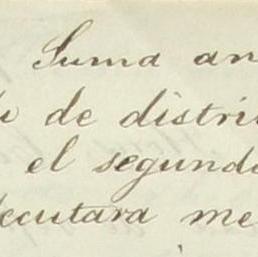 Suma an
de distri
el segundo
ecutara me